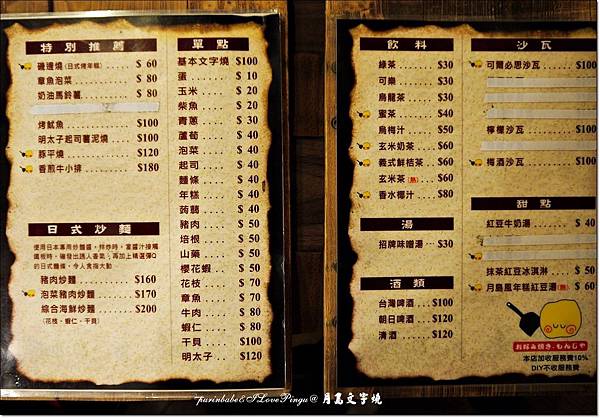 特別推薦
磯邊燒(日式烤年糕) $ 60
章魚泡菜 $ 80
奶油馬鈴薯 $ 80
烤魷魚 $100
明太子起司薯泥燒 $100
豚平燒 $120
香煎牛小排 $180
日式炒麵
使用日本專用炒麵醬，拌炒時，當醬汁接觸
鐵板時，碰發出誘人香氣，再加上精選彈Q
的日式麵條，令人食指大動
豬肉炒麵 $160
泡菜豬肉炒麵 $170
綜合海鮮炒麵 $200
(花枝、蝦仁、干貝)
單點
基本文字燒 $100
蛋 $ 10
玉米 $ 20
柴魚 $ 20
青蔥 $ 30
蘆筍 $ 40
泡菜 $ 40
起司 $ 40
麵條 $ 40
年糕 $ 40
蒟蒻 $ 40
豬肉 $ 50
培根 $ 50
山藥 $ 50
櫻花蝦 $ 50
花枝 $ 70
章魚 $ 70
牛肉 $ 80
蝦仁 $ 80
干貝 $100
明太子 $120
飲料
綠茶 $30
可樂 $30
烏龍茶 $30
蜜茶 $40
烏梅汁 $50
玄米奶茶 $60
義式鮮桔茶 $60
玄米茶(熱) $60
香水椰汁 $80
湯
招牌味噌湯 $30
酒類
台灣啤酒 $100
朝日啤酒 $120
清酒 $120
沙瓦
可爾必思沙瓦 $100
檸檬沙瓦
梅酒沙瓦 $100
甜點
紅豆牛奶湯 $ 40
抹茶紅豆冰淇淋 $ 50
月島風年糕紅豆湯(熱) $ 60
お好み焼き.もんじゃ
本店加收服務費10%
DIY不收服務費
purinbabe&ILovePingu@月島文字燒